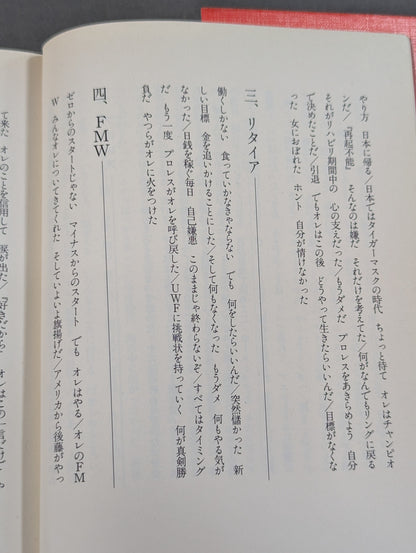 やり方　日本に帰る／日本ではタイガーマスクの時代　ちょっと待て　オレはチャンピオ
ンだ／『再起不能』　そんなのは嫌だ　それだけを考えてた／何がなんでもリングに戻る
それがリハビリ期間中の　心の支えだった／もうダメだ　プロレスをあきらめよう　自分
で決めたことだ／引退　でもオレはこの後　どうやって生きたらいいんだ／目標がなくな
った　女におぼれた　ホント　自分が情けなかった
三、リタイア
働くしかない　食っていかなきゃならない　でも　何をしたらいいんだ／突然儲かった　新
しい目標　金を追いかけることにした／そして何もなくなった　もうダメ　何もやる気が
なかった／日銭を稼ぐ毎日　自己嫌悪　このままじゃ終わらないぞ／すべてはタイミング
だ　もう一度　プロレスがオレを呼び戻した／UWFに挑戦状を持っていく　何が真剣勝
負だ　やつらがオレに火をつけた
四、FMW
ゼロからのスタートじゃない　マイナスからのスタート　でも　オレはやる／オレのFM
W　みんなオレについてきてくれた　そしていよいよ旗揚げだ／アメリカから後藤がやっ
て来た　オレのことを信用して　涙が出た／『好きだから』　オレはこの一言